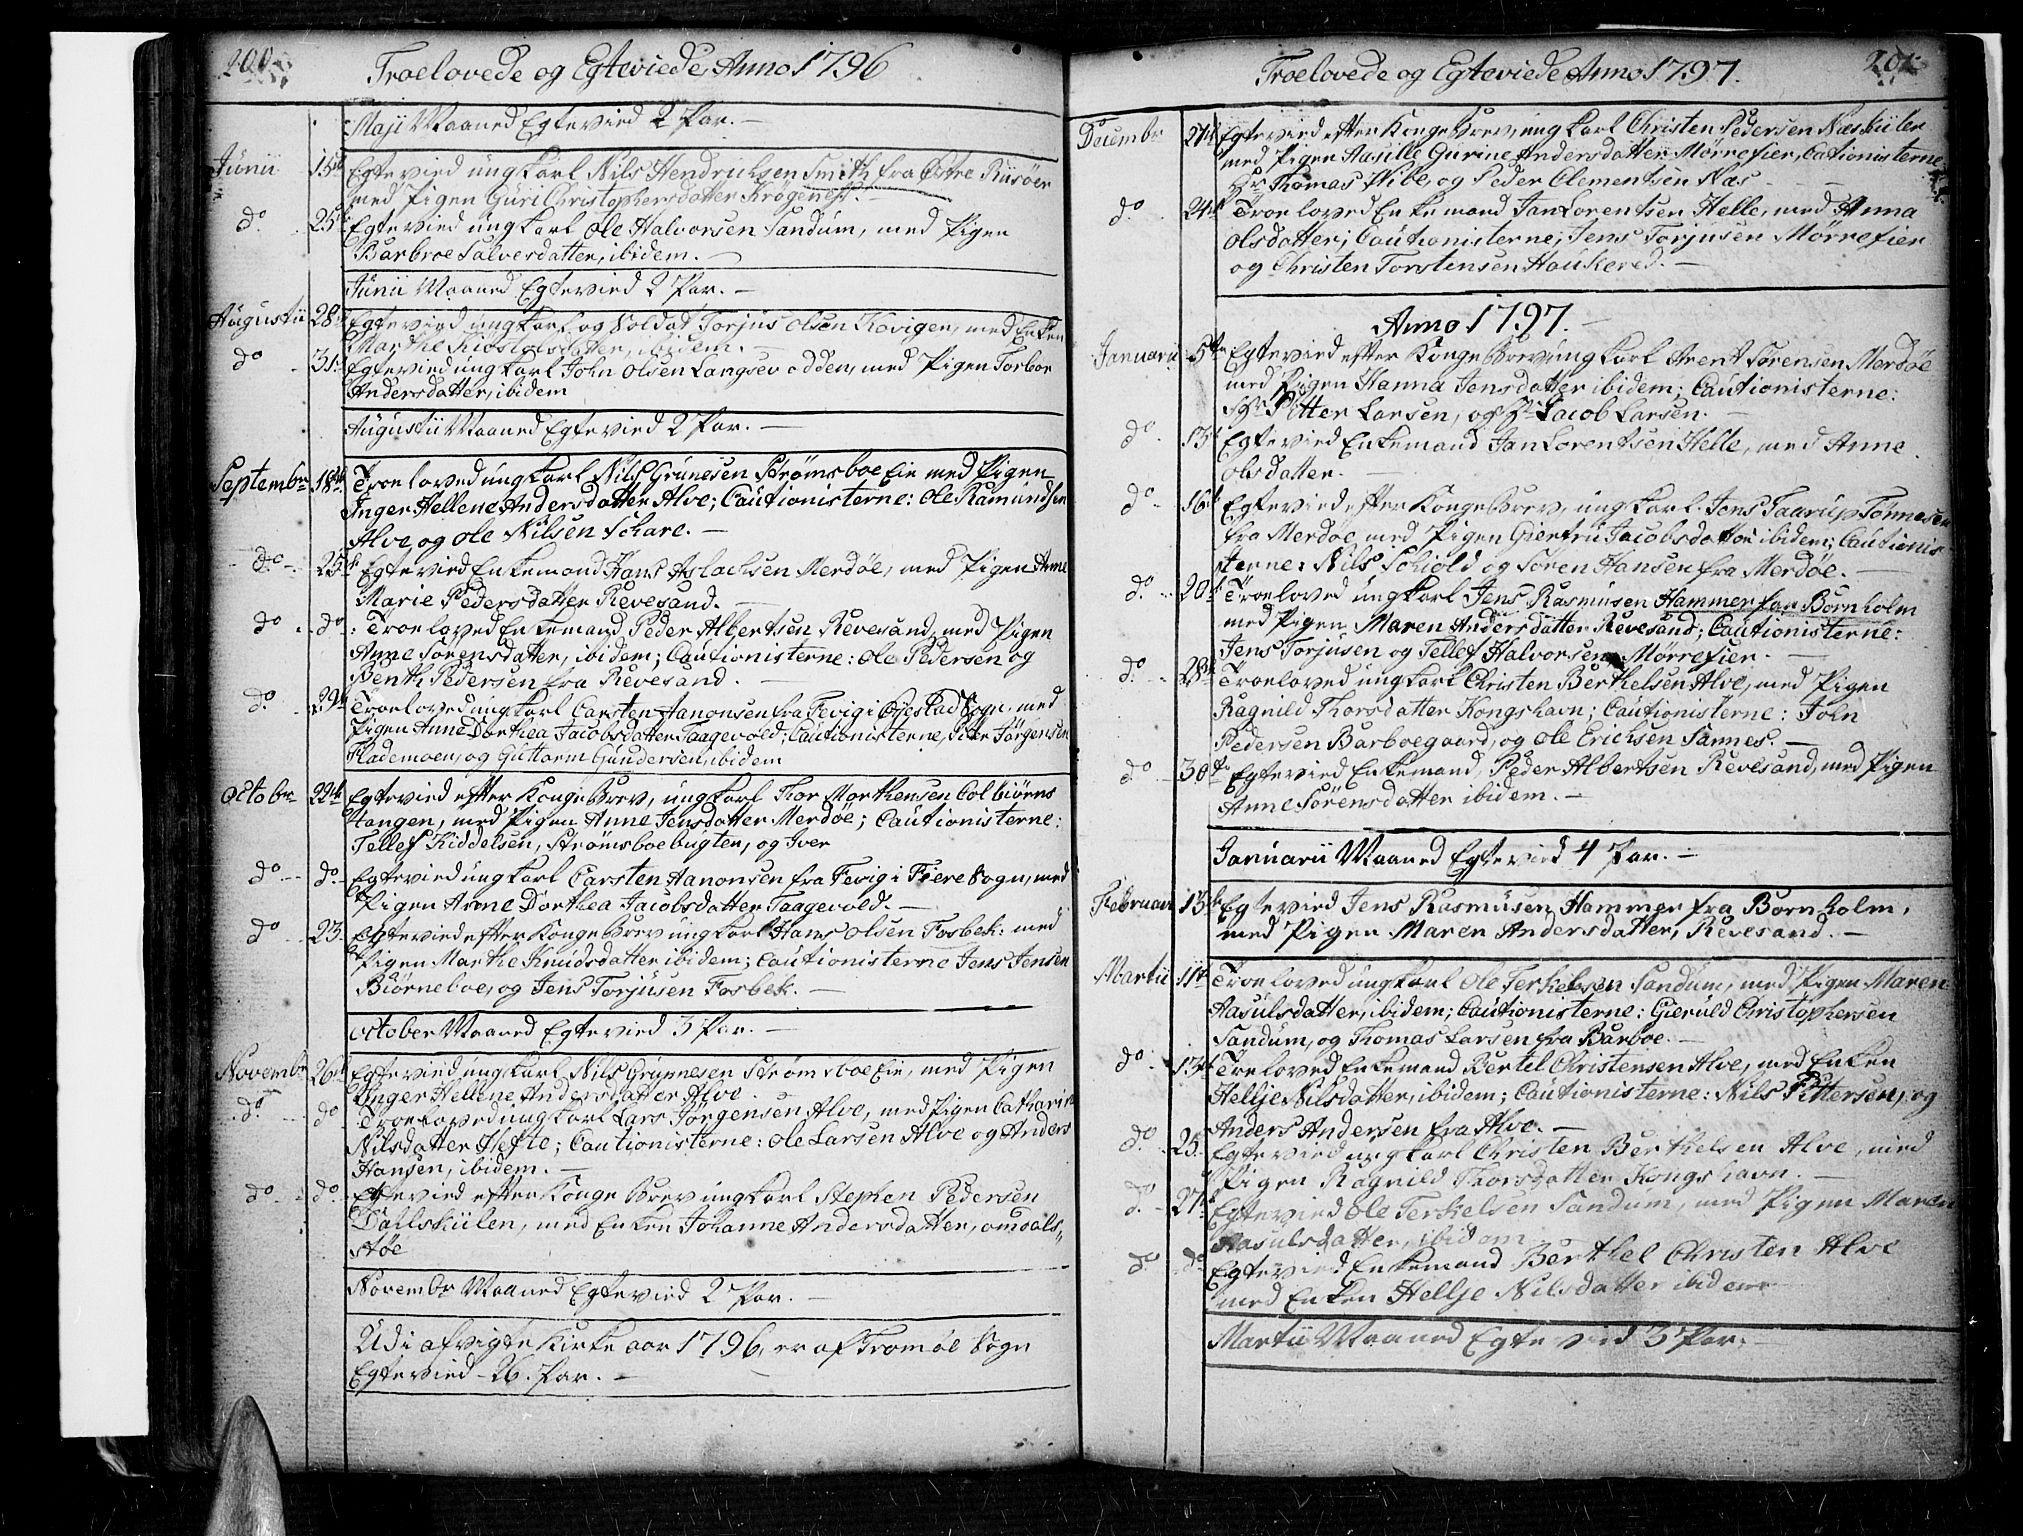 200
Troelovede og Egteviede, Anno 1796
Maji Maaned Egtevied 2 Par. —
Junii 15de Egtevied ungkarl Nils Hendrichsen Smith fra Østre Riisøer
med Pigen Guri Christophersdatter Krøgenes. —
do 25de Egtevied ungkarl Ole Halvorsen Sandum, med Pigen
Barbroe Salvesdatter, ibidem. —
Junii Maaned Egtevied 2 Par. —
Augustii 28de Egtevied ungkarl og Soldat Torjus Olsen Kovigen, med Enken
Marthe ibidem. —
do 31. Egtevied ungkarl John Olsen Langsev odden, med Pigen Torbor
Andersdatter, ibidem
Augustii Maaned Egtevied 2 Par. —
Septembr 18de Troeloved ungkarl Nils Grunesen Strømsboe Eie med Pigen
Inger Hellene Andersdatter Alve; Cautionisterne: Ole Ramundsen
Alve og Ole Nilsen Schare. —
do 25de Egtevied Enkemand Hans Aslachsen Merdøe, med Pigen Anne
Marie Pedersdatter Revesand. —
do do: Troeloved Enkemand Peder Albertsen Revesand, med Pigen
Anne Sørensdatter, ibidem; Cautionisterne: Ole Pedersen og
Benth Pedersen fra Revesand. —
do. 29de Troeloved ungkarl Carsten Hanonsen fra Fevig i Øiestad Sogn, med
Pigen Anne Dorthea Jacobsdatter Taagevold; Cautionisterne, Jørgensen
Flademoen, og Guttorm Gundersen, ibidem
Octobr 22de Egtevied efter Kongebrev, ungkarl Thor Morthensen Colbiørns
tangen, med Pigen Anne Jensdatter Merdøe; Cautionisterne:
Tellef Kiddelsen, Strømsboebugten, og Iver
do do Egtevied ungkarl Carsten Hanonsen fra Fevig i Fiere Sogn, med
Pigen Anne Dorthea Jacobsdatter Taagevold. —
do 23. Egtevied efter Kongebrev ungkarl Hans Olsen Fosbek: med
Pigen Marthe Knudsdatter ibidem; Cautionisterne Jens Jensen
Biørneboe, og Jens Torjusen Fosbek. —
October Maaned Egtevied 3 Par. —
Novembr 26de Egtevied ungkarl Nils Grunesen Strømsboe Eie, med Pigen
Inger Hellene Andersdatter Alve.
do. do Troeloved ungkarl Lars Jørgensen Alve, med Pigen Catharin
Nilsdatter Hefte; Cautionisterne: Ole Larsen Alve og Anders
Hansen, ibidem. —
do do. Egtevied efter Kongebrev ungkarl Stephen Pedersen
Dailskiilen, med Enken Johanne Andersdatter, omdals
støe
Novembr Maaned Egtevied 2 Par. —
Udi afvigte Kirkeaar 1796, er af Tromøe Sogn
Egtevied 26. Par. —
201
Troelovede og Egteviede Anno 1797.
Decembr 21de Egtevied efter Kongebrev, ungkarl Christen Pedersen Næskiilen
med Pigen Aasille Gurine Andersdatter Mørrefier, Cautionisterne
Hr Thomas Vibe, og Peder Clementsen Næs
do. 24de Troeloved Enkemand Jan Lorentsen Helle, med Anna
Olsdatter; Cautionisterne; Jens Torjusen Mørrefier
og Christen Torstensen Haukered. —
Anno 1797. —
Januarii 5te Egtevied efter Kongebrev ungkarl Arent Sørensen Merdøe
med Pigen Hanna Jensdatter ibidem; Cautionisterne:
Sr Pitter Larsen, og Sr Jacob Larsen. —
do. 13de Egtevied Enkemand Jan Lorentsen Helle, med Anne
Olsdatter. —
do 16de Egtevied efter Kongebrev, ungkarl Jens Taarup Tønnesen
fra Merdøe med Pigen Giertru Jacobsdatter ibidem; Cautionis
terne: Nils Schiold og Søren Hansen fra Merdøe. —
do. 20de Troeloved ungkarl Jens Rasmusen Hammer fra Bornholm
med Pigen Maren Andersdatter Revesand; Cautionisterne:
Jens Torjusen og Tellef Halvorsen Mørrefier. —
do. 28de Troeloved ungkarl Christen Berthelsen Alve, med Pigen
Ragnild Thorsdatter Kongshavn; Cautionisterne: John
Pedersen Barboegaard, og Ole Erichsen Sannes. —
do 30te Egtevied Enkemand, Peder Albertsen Revesand, med Pigen
Anne Sørensdatter ibidem. —
Januarii Maaned Egtevied 4 Par. —
Februarii 15de Egtevied Jens Rasmusen Hammer fra Bornholm,
med Pigen Maren Andersdatter, Revesand. —
Martii 11te Troeloved ungkarl Ole Terkelsen Sandum, med Pigen Maren
Aasulsdatter, ibidem; Cautionisterne: Gieruld Christophersen
Sandum, og Thomas Larsen fra Barboe. —
do 13de Troeloved Enkemand Bertel Christensen Alve, med Enken
Hellje Nilsdatter, ibidem; Cautionisterne: Nils Pittersen, og
Anders Andersen fra Alve. —
do. 25. Egtevied ungkarl Christen Berthelsen Alve, med
Pigen Ragnild Thorsdatter Kongshavn. —
do. 27de Egtevied Ole Terkelsen Sandum, med Pigen Maren
Aasulsdatter, ibidem
do do Egtevied Enkemand Berthel Christen Alve
med Enken Hellje Nilsdatter ibidem
Martii Maaned Egtevied 3 Par. —